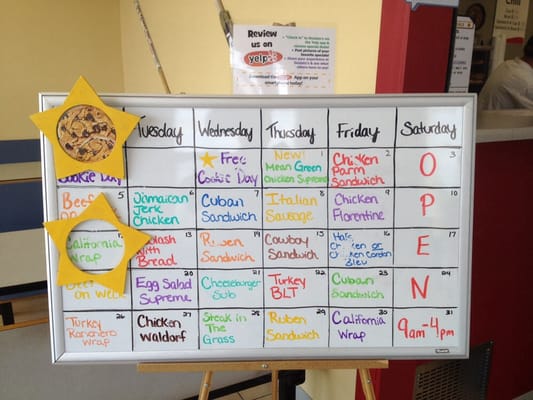 Review
us on
yelp
Tuesday Wednesday Thursday Friday Saturday
Cookie Day
Free
Cookie Day
New! 1
Mean Green
Chicken Supreme
Chicken 2
Parm
Sandwich
O 3
Beef 5
Jamaican 6
Jerk
Chicken
Cuban 7
Sandwich
Italian 8
Sausage
Chicken 9
Florentine
P 10
California 12
Wrap
13
with
Bread
Ruben 14
Sandwich
Cowboy 15
Sandwich
Half
Chicken or
Chicken Cordon
Bleu
E 17
on Weck
Egg Salad 20
Supreme
Cheeseburger 21
Sub
Turkey 22
BLT
Cuban 23
Sandwich
N 24
Turkey 26
Wrap
Chicken 27
Waldorf
Steak in 28
The
Grass
Ruben 29
Sandwich
California 30
Wrap
31
9am-4pm